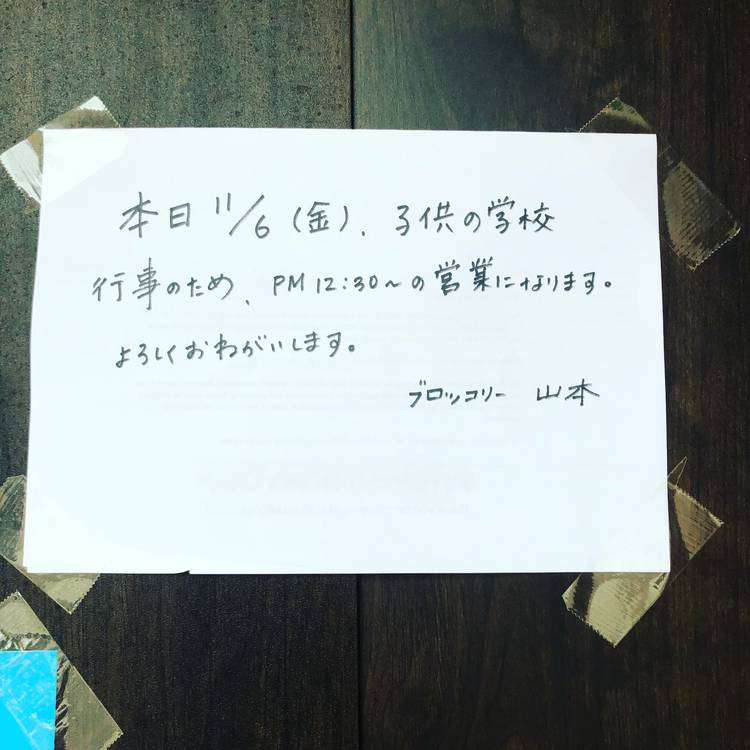 本日 11/6 (金)、子供の学校
行事のため、PM 12:30〜の営業になります。
よろしくおねがいします。
ブロッコリー 山本